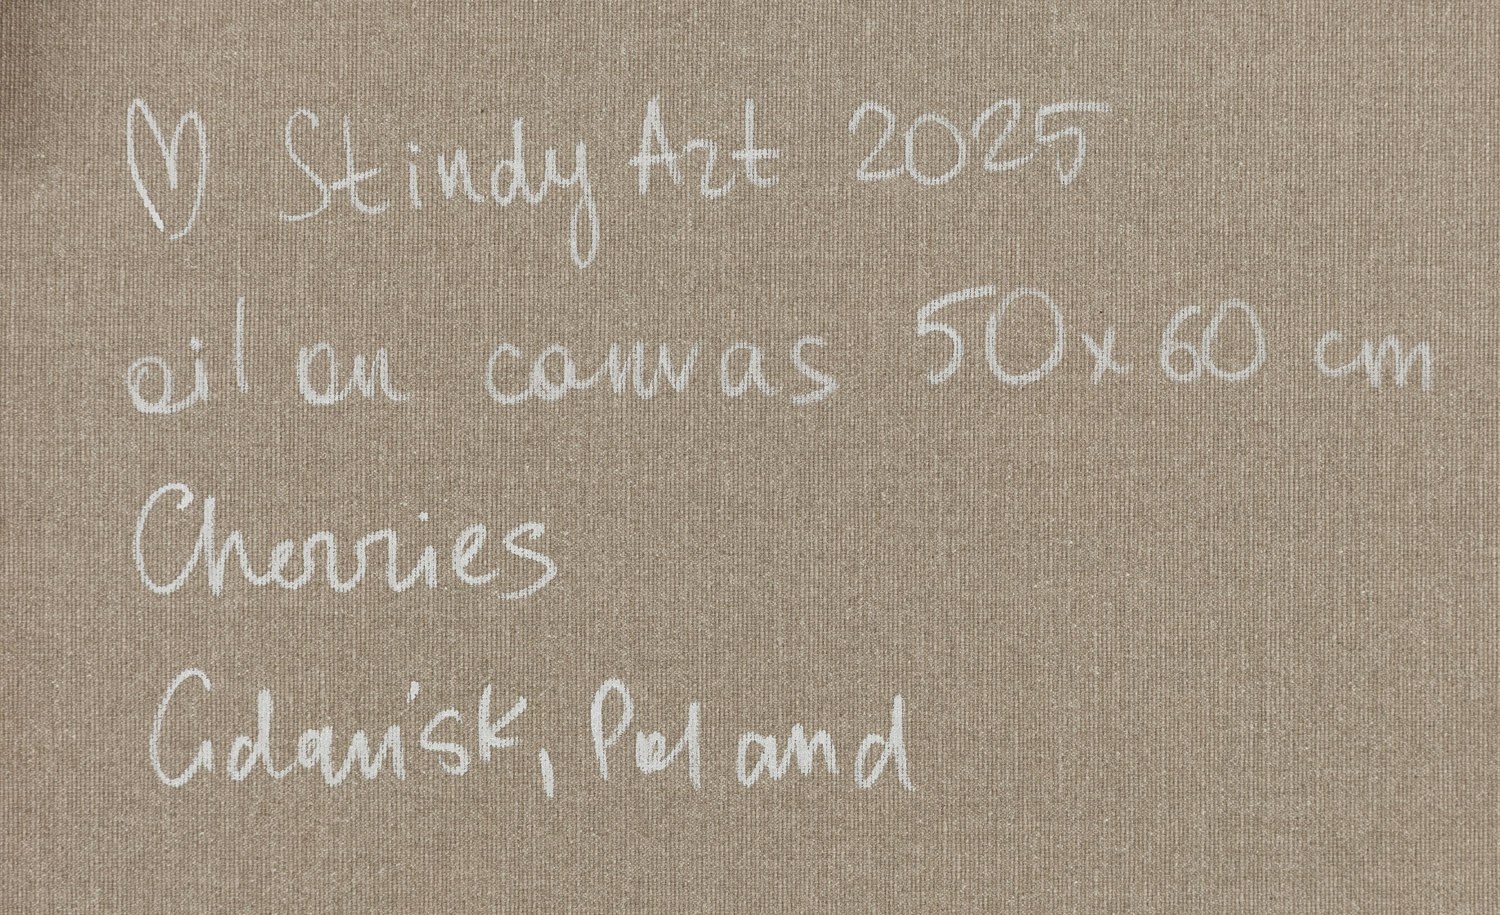 ♡ Stindy Art 2025
oil on canvas 50x60 cm
Cherries
Gdańsk, Poland